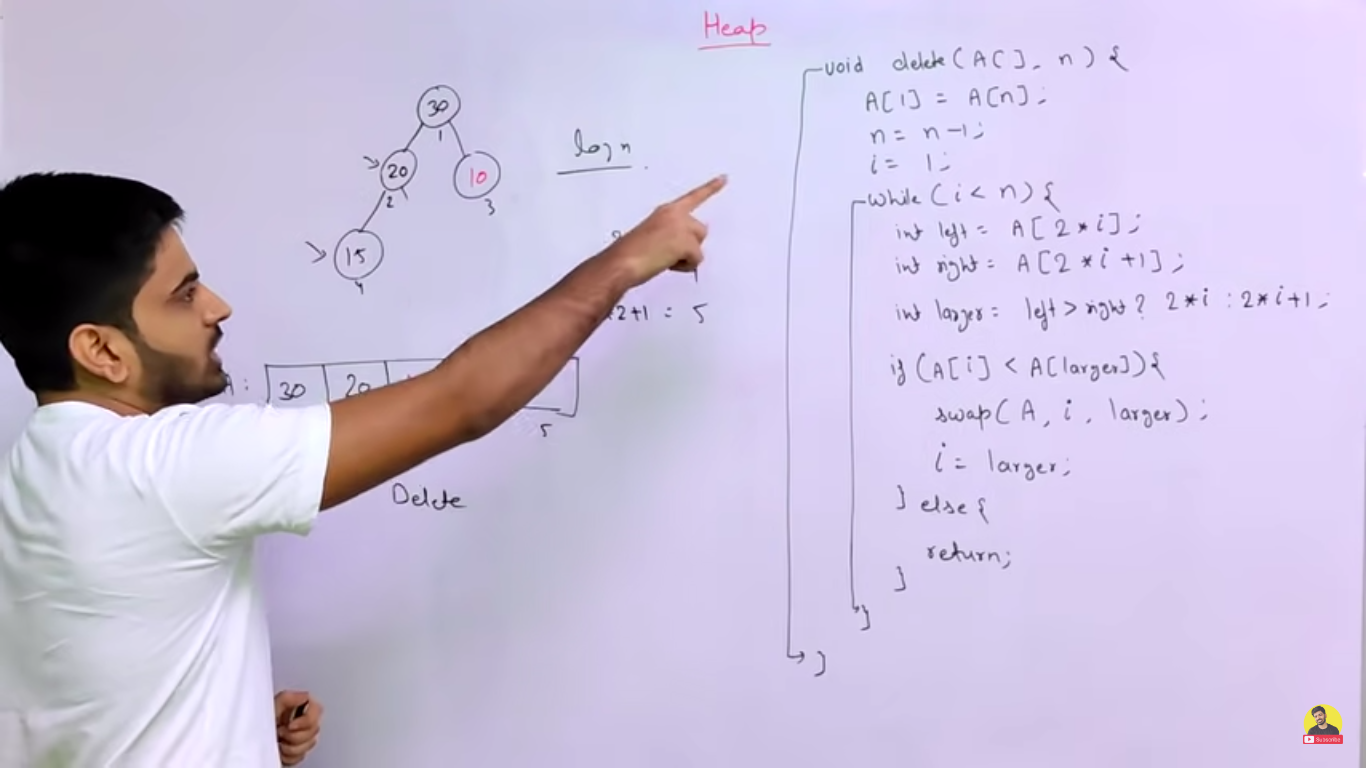 Heap
30
1
20
2
10
3
15
4
log n
2+1 = 5
A:
30
20
5
Delete
void delete(A[], n) {
A[1] = A[n];
n = n-1;
i = 1;
while (i < n) {
int left = A[2*i];
int right = A[2*i+1];
int larger = left > right ? 2*i : 2*i+1;
if (A[i] < A[larger]) {
swap(A, i, larger);
i = larger;
} else {
return;
}
}
}
Subscribe